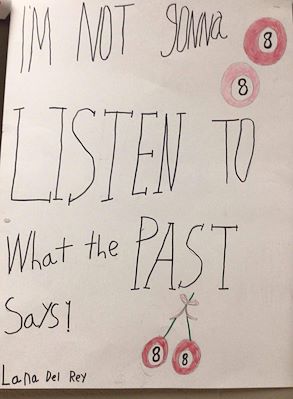 I'M NOT gonna 8
8
LISTEN TO
What the PAST
Says!
8 8
Lana Del Rey